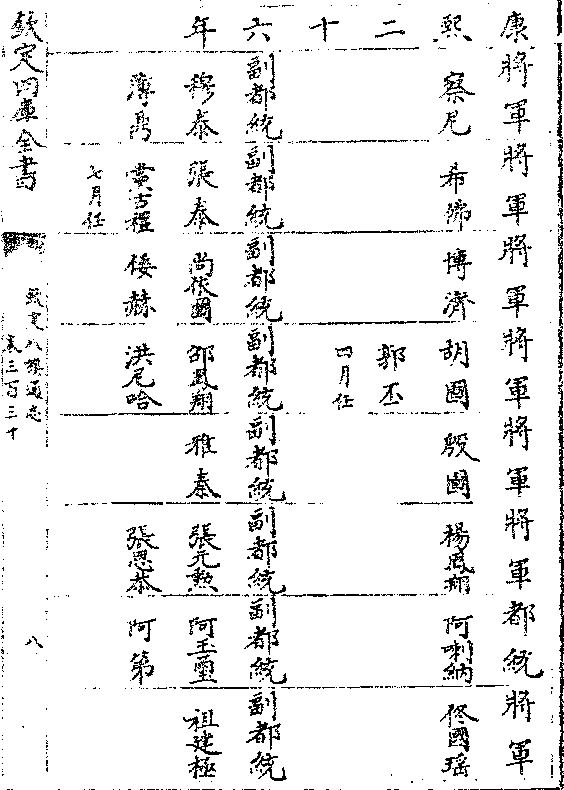 康熙二十六年
將軍 將軍 將軍 將軍 將軍 將軍 都統 將軍
察尼 希佛 博濟 胡國 殷國 楊鳳翔 阿喇納 佟國瑶
郭丕
四月任
副都統 副都統 副都統 副都統 副都統 副都統 副都統 副都統
穆泰 張泰 尚依圖 邵鳳翔 雅秦 張元勲 阿玉璽 祖建極
薄 賞古禮 倭赫 洪尼哈 張思恭 阿第
七月任
欽定四庫全書
欽定八旗通志
卷三百三十
八